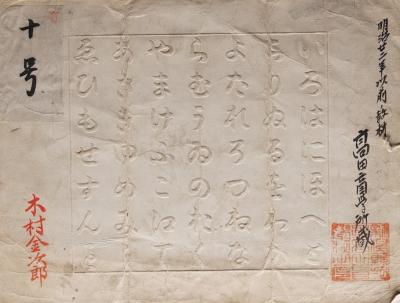 明治廿二年以前ノ教材
いろはにほへと
ちりぬるをわか
よたれそつねな
らむうゐのおく
やまけふこえて
あさきゆめみし
ゑひもせすん
十号
木村金次郎